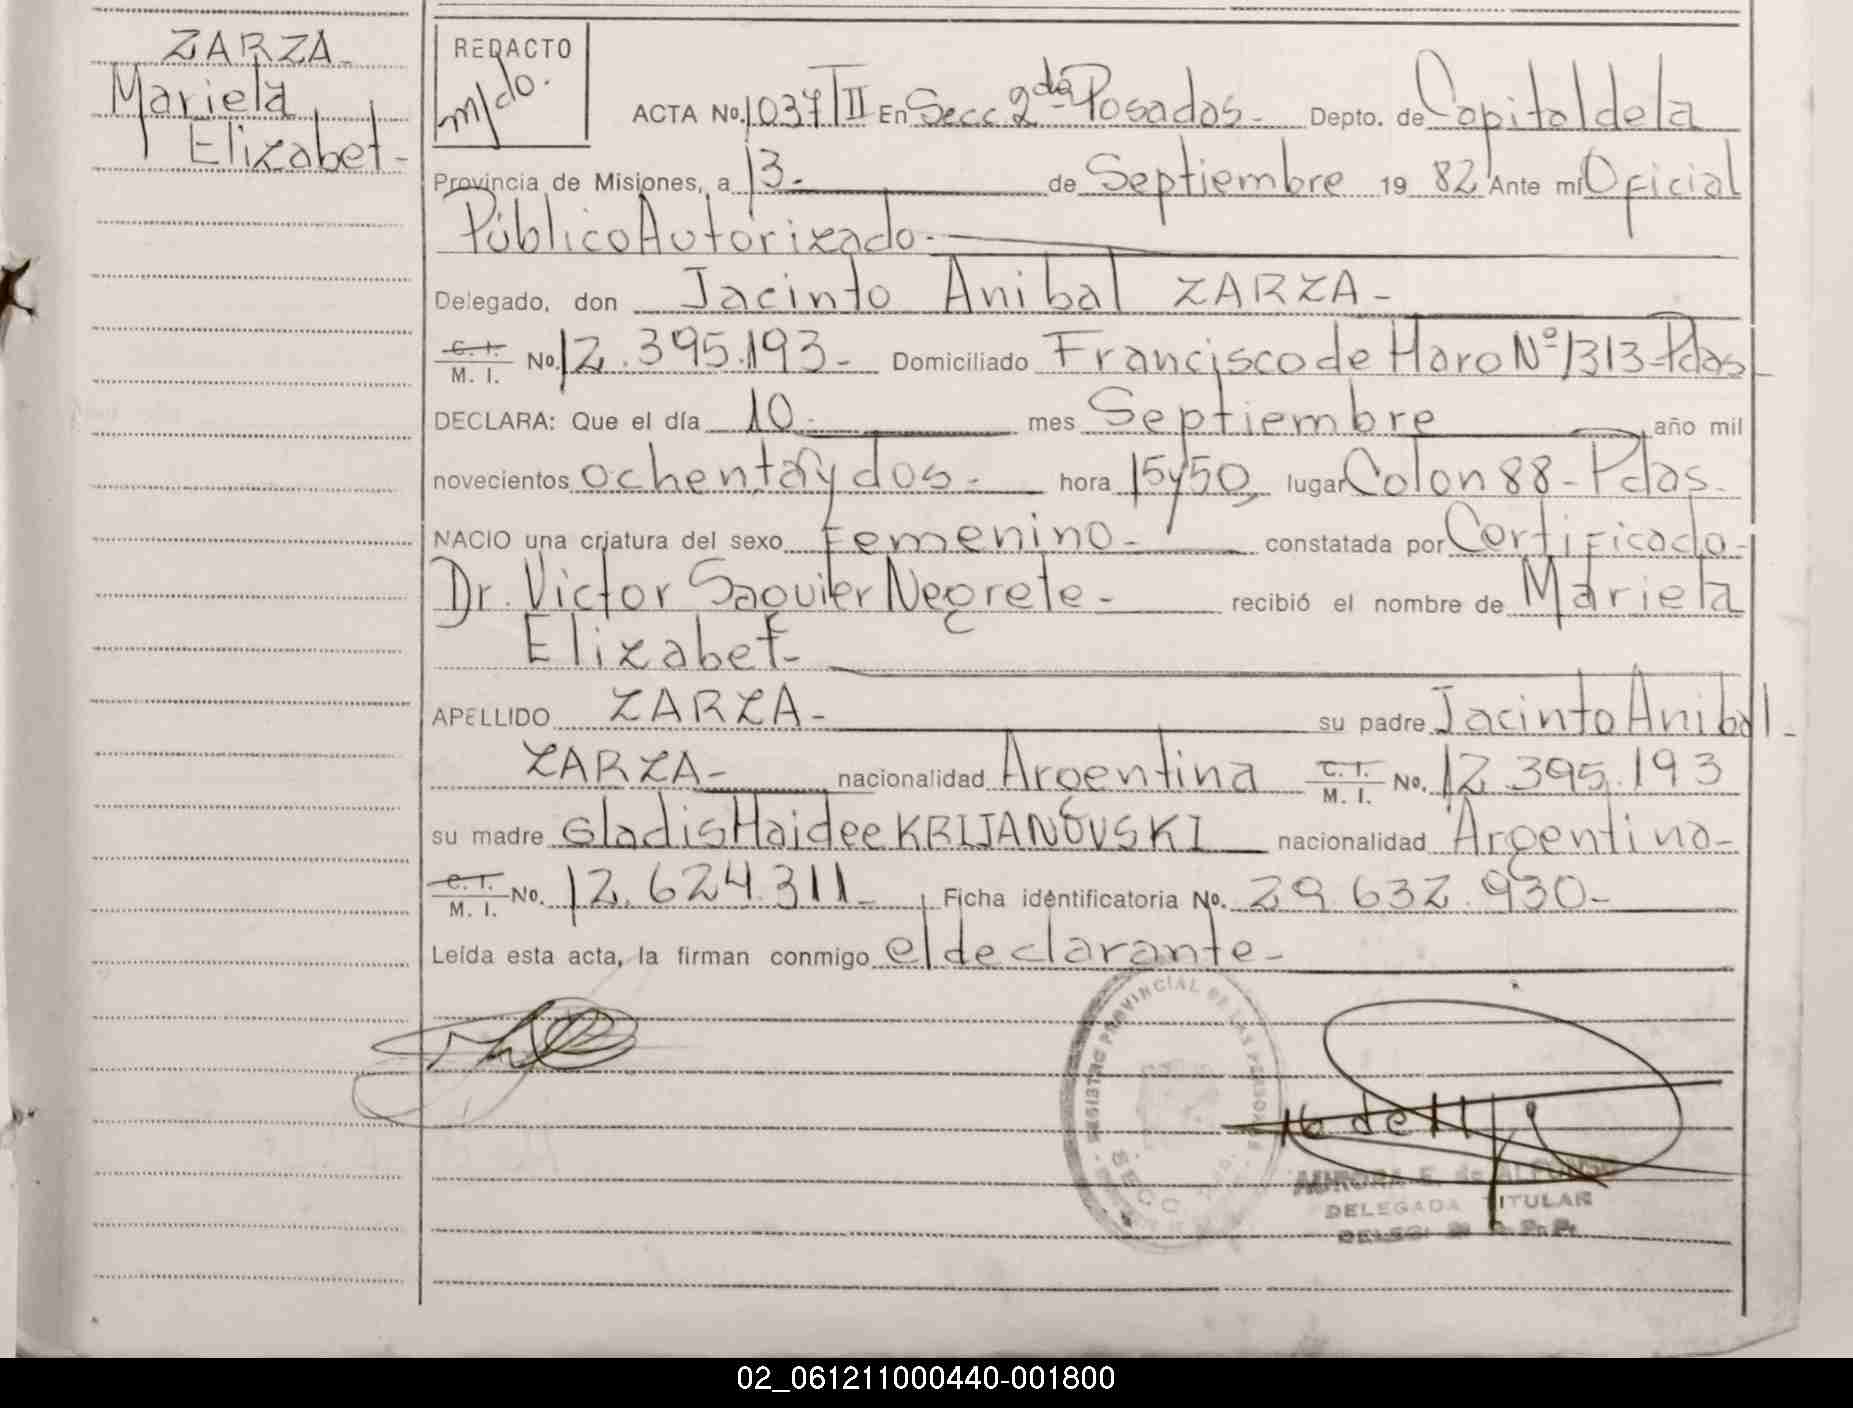 ZARZA-
Mariela
Elizabet-
REDACTO
m/do.
ACTA No. 1037/II En Secc 2da Posadas- Depto. de Capital de la
Provincia de Misiones, a 13- de Septiembre 19 82 Ante mí Oficial
Público Autorizado-
Delegado, don Jacinto Anibal ZARZA-
C. I. / M. I. No. 12.395.193- Domiciliado Francisco de Haro Nº 1313-Pdas
DECLARA: Que el día 10- mes Septiembre año mil
novecientos ochenta y dos- hora 15 y 50, lugar Colon 88-Pdas.
NACIO una criatura del sexo Femenino- constatada por Certificado-
Dr. Victor Saguier Negrete- recibió el nombre de Mariela
Elizabet-
APELLIDO ZARZA- su padre Jacinto Anibal-
ZARZA- nacionalidad Argentina C. I. / M. I. No. 12.395.193
su madre Gladis Haidee KRIJANOVSKI nacionalidad Argentina-
C. I. / M. I. No. 12.624.311- Ficha identificatoria No. 29.632.930-
Leída esta acta, la firman conmigo el declarante-
REGISTRO PROVINCIAL DE LAS PERSONAS
SECC
AURORA E. de
DELEGADA TITULAR
02_061211000440-001800